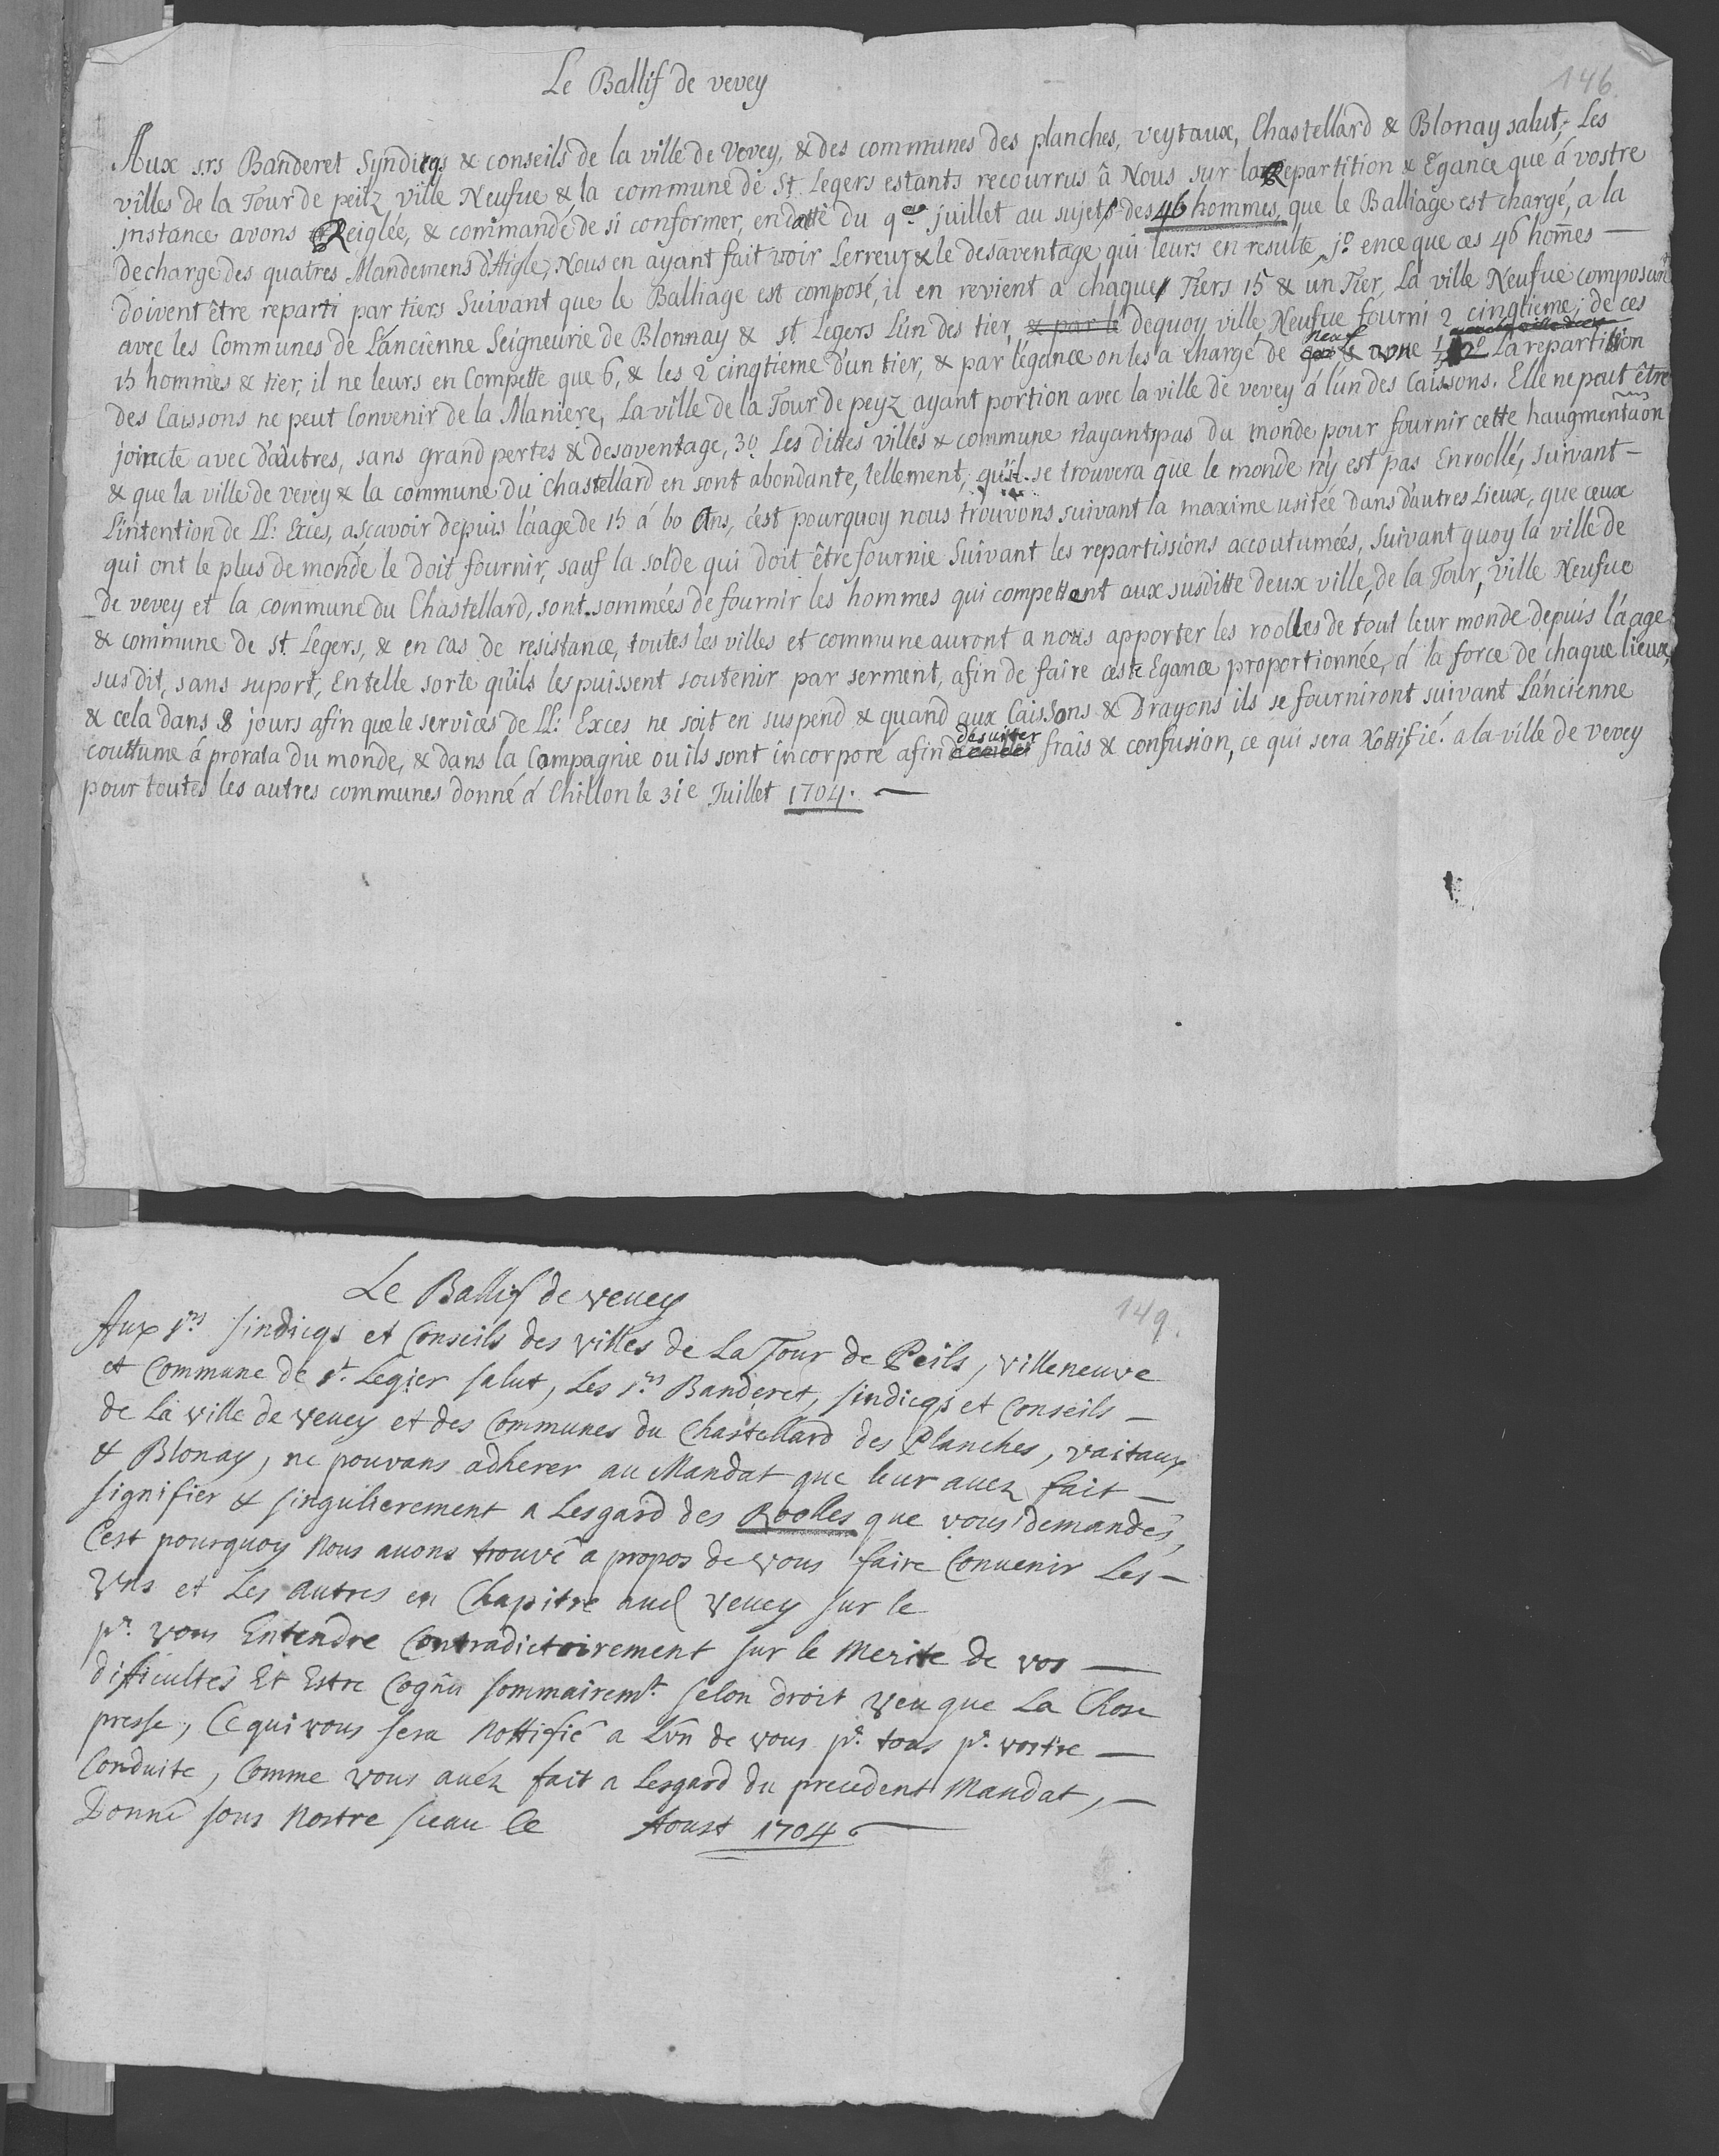 146.
Le Ballif de vevey
Aux srs Banderet Syndicqs & conseils de la ville de Vevey, & des communes des planches, veytaux, Chastellard & Blonay salut, Les
villes de la Tour de peilz ville Neufue & la commune de St. Legers estants recourrus â Nous sur la Repartition & Egance que á vostre
jnstance avons Reiglée, & commandé de si conformer, en datte du 9.e juillet au sujet des 46 hommes, que le Balliage est chargé, a la
decharge des quatres Mandemens d'Aigle, Nous en ayant fait voir Lerreur & le desaventage qui leurs en resulte jo. en ce que ces 46 hom̃es —
doivent être reparti par tiers Suivant que le Balliage est composé, il en revient a chaque Tiers 15 & un Tier, La ville Neufue composant
avec les Communes de L'áncienne Seigneurie de Blonnay & st. Legers L'un des tier, & par le dequoy ville Neufue fourni 2 cinqtieme, de ces
15 hommes & tier, il ne leurs en Compette que 6, & les 2 cinqtieme d'un tier, & par l'égance on les a chargé de neuf & une 1/3 2o La repartition
des Caissons ne peut Convenir de la Maniere, La ville de la Tour de peyz ayant portion avec la ville de vevey á l'un des Caissons. Elle ne peut être
joincte avec d'autres, sans grand pertes & desaventage, 3o. Les dittes villes & commune n'ayants pas du monde pour fournir cette haugmentaon
& que la ville de vevey & la commune du Chastellard en sont abondante, tellement, qu'il se trouvera que le monde n'y est pas Enroollé, suivant —
L'intention de LL: Exces, asçavoir depuis l'áage de 15 á 60 Ans, c'est pourquoy nous trouvons suivant la maxime usitée dans d'autres Lieux, que ceux
qui ont le plus de monde le doit fournir, sauf la solde qui doit être fournie Suivant les repartissions accoutumées, Suivant quoy la ville de
de vevey et la commune du Chastellard, sont sommées de fournir les hommes qui compettent aux susditte deux ville, de la Tour, Ville Neufue
& commune de St. Legers, & en cas de resistance, toutes les villes et commune auront a nous apporter les roolles de tout leur monde depuis l'áage
susdit, sans suport, En telle sorte qu'ils les puissent soutenir par serment, afin de faire ceste Egance proportionnée, á la force de chaque lieux,
& cela dans 8 jours afin que le services de LL: Exces ne soit en suspend & quand aux Caissons & Dragons ils se fourniront suivant L'áncienne
couttume á prorata du monde, & dans la Compagnie ou ils sont incorporé afin desuitter frais & confusion, ce qui sera Nottifié. a la ville de vevey
pour toutes les autres communes donné á Chillon le 31e Juillet 1704. —
149.
Le Ballif de Veuey
Aux srs Sindicqs et Conseils des villes de La Tour de Peils, villeneuve
et Commune de St. Legier salut, Les srs Banderet, sindicqs et Conseils —
de La ville de Veuey et des Communes du Chastellard des Planches, vaitaux
& Blonay, ne pouvans adherer au Mandat que leur auez fait —
signifier & singulierement a Lesgard des Roolles que vous demandés,
C'est pourquoy Nous auons trouvé a propos de vous faire Conuenir Les —
Vns et Les Autres en Chapitre aud Veuey sur le
pr. vous Entendre Contradictoirement sur le Merite de vos —
difficultés Et Estre Cogñu sommairemt. selon droit veu que La Chose
presse, Ce qui vous sera Nottifié a L'vn de vous pr. tous pr. vostre —
Conduite, Comme vous auéz fait a Lesgard du precedent Mandat, —
Donné sous Nostre sceau le Aoust 1704 —